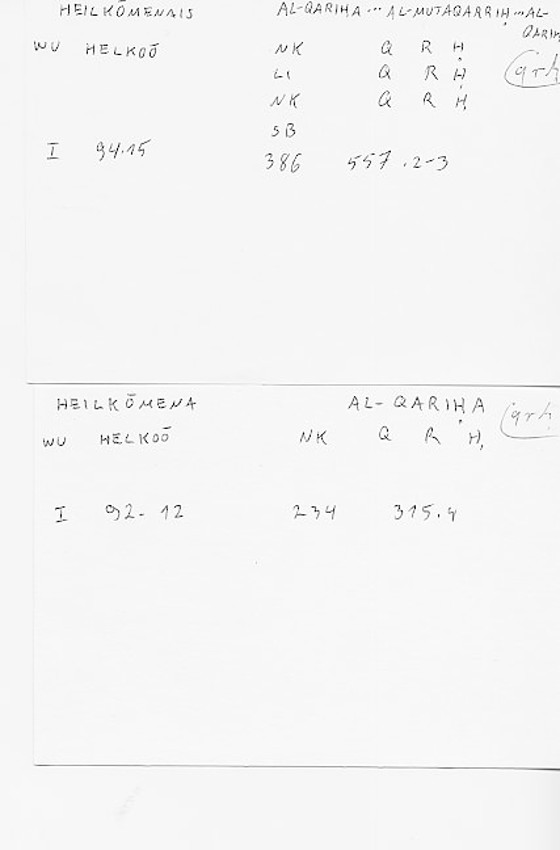 HEILKŌMENAIS AL-QARIHA ... AL-MUTAQARRIḤ ... AL-
QARIḤ
WU HELKOŌ NK Q R H
(qrḥ
LI Q R Ḥ
NK Q R Ḥ
SB
I 94.15 386 557.2-3
HEILKŌMENA AL-QARIḤA (qrḥ
WU HELKOŌ NK Q R Ḥ
I 92-12 234 315.4